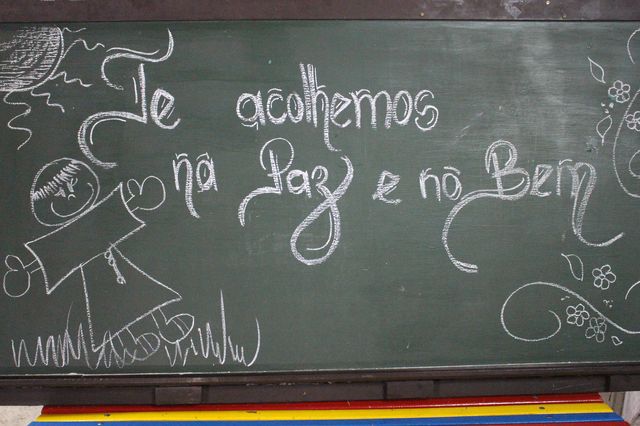 Te acolhemos
na Paz e no Bem